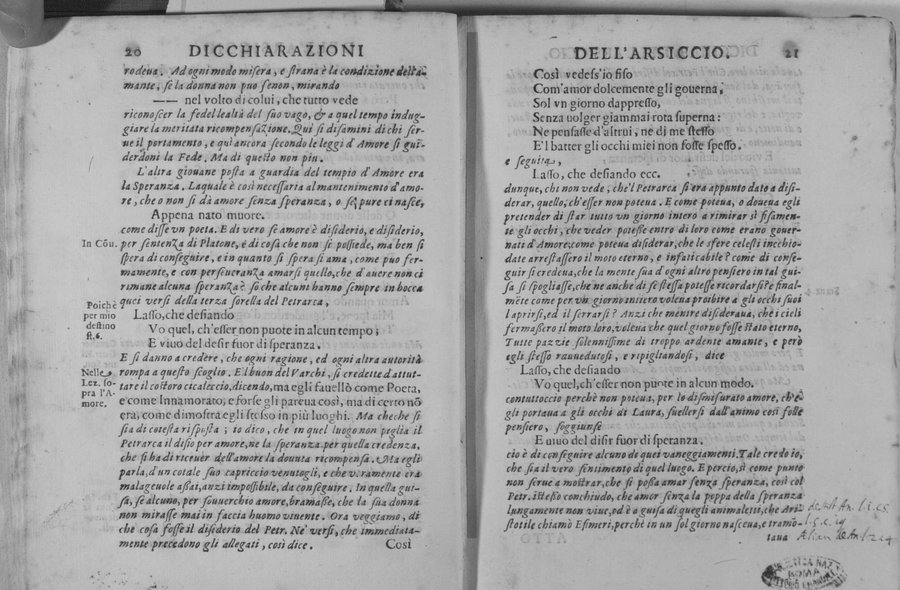 20 DICCHIARAZIONI
rodeua. Ad ogni modo misera, e strana è la condizione dell'a-
mante, se la donna non può senon, mirando
—— nel volto di colui, che tutto vede
riconoscer la fedel lealtà del suo vago, & a quel tempo indug-
giare la meritata ricompensazione. Qui si disamini di chi ser-
ue il portamento, e qui ancora secondo le leggi d'Amore si gui-
derdoni la Fede. Ma di questo non piu.
L'altra giouane posta a guardia del tempio d'Amore era
la Speranza. Laquale è così necessaria al mantenimento d'amo-
re, che o non si dà amore senza speranza, o se pure ci nasce,
Appena nato muore.
come disse vn poeta. E di vero se amore è disiderio, e disiderio,
In Cōu. per sentenza di Platone, è di cosa che non si possiede, ma ben si
spera di conseguire, e in quanto si spera si ama, come può fer-
mamente, e con perseueranza amarsi quello, che d'auere non ci
rimane alcuna speranza? so che alcuni hanno sempre in bocca
quei versi della terza sorella del Petrarca,
Poichè
per mio
destino
st. 6.
Lasso, che desiando
Vo quel, ch'esser non puote in alcun tempo;
E viuo del desir fuor di speranza.
E si danno a credere, che ogni ragione, ed ogni altra autorità
rompa a questo scoglio. E'l buon del Varchi, si credette d'attut-
tare il costoro cicaleccio, dicendo, ma egli fauellò come Poeta,
e come Innamorato, e forse gli pareua così, ma di certo nō
era, come dimostra egli stesso in più luoghi. Ma cheche si
Nelle
Lez. so-
pra l'A-
more.
sia di cotesta risposta; io dico, che in quel luogo non piglia il
Petrarca il disio per amore, ne la speranza per quella credenza,
che si ha di riceuer dell'amore la douuta ricompensa. Ma egli
parla, d'un cotale suo capriccio venutogli, e che veramente era
malageuole assai, anzi impossibile, da conseguire. In quella gui-
sa, se alcuno, per souuerchio amore, bramasse, che la sua donna
non mirasse mai in faccia huomo viuente. Ora veggiamo, di
che cosa fosse il disiderio del Petr. Ne' versi, che immediata-
mente precedono gli allegati, così dice.
Così
DELL'ARSICCIO. 21
Così vedess'io fiso
Com'amor dolcemente gli gouerna,
Sol vn giorno dappresso,
Senza uolger giammai rota superna:
Ne pensasse d'altrui, ne di me stesso
E'l batter gli occhi miei non fosse spesso.
e seguita,
Lasso, che desiando ecc.
dunque, chi non vede, che'l Petrarca si era appunto dato a disi-
derar, quello, ch'esser non poteua. E come poteua, o doueua egli
pretender di star tutto vn giorno intero a rimirar sì fisamen-
te gli occhi, che veder potesse entro di loro come erano gouer-
nati d'Amore; come poteua disiderar, che le sfere celesti inchio-
date arrestassero il moto eterno, e infaticabile? come di conse-
guir si credeua, che la mente sua d'ogni altro pensiero in tal gui-
sa si spogliasse, che ne anche di se stessa potesse ricordarsi? e final-
mēte come per vn giorno intiero voleua proibire a gli occhi suoi
l'aprirsi, ed il serrarsi? Anzi che mentre disideraua, che i cieli
fermassero il moto loro, voleua che quel giorno fosse stato eterno,
Tutte pazzie solennissime di troppo ardente amante, e però
egli stesso rauuedutosi, e ripigliandosi, dice
Lasso, che desiando
Vo quel, ch'esser non puote in alcun modo.
contuttoccio perchè non poteua, per lo dismisurato amore, ch'e-
gli portaua a gli occhi di Laura, suellersi dall'animo così folle
pensiero, soggiunse
E viuo del disir fuor di speranza.
cio è di conseguire alcuno de quei vaneggiamenti. Tale credo io,
che sia il vero sentimento di quel luogo. E perciò, sì come punto
non serue a mostrar, che si possa amar senza speranza, così col
Petr. istesso conchiudo, che amor senza la poppa della speranza
lungamente non viue, ed è a guisa di quegli animaletti, che Ari-
stotile chiamò Efimeri, perchè in un sol giorno nasceua, e tramō-
taua
ROMA